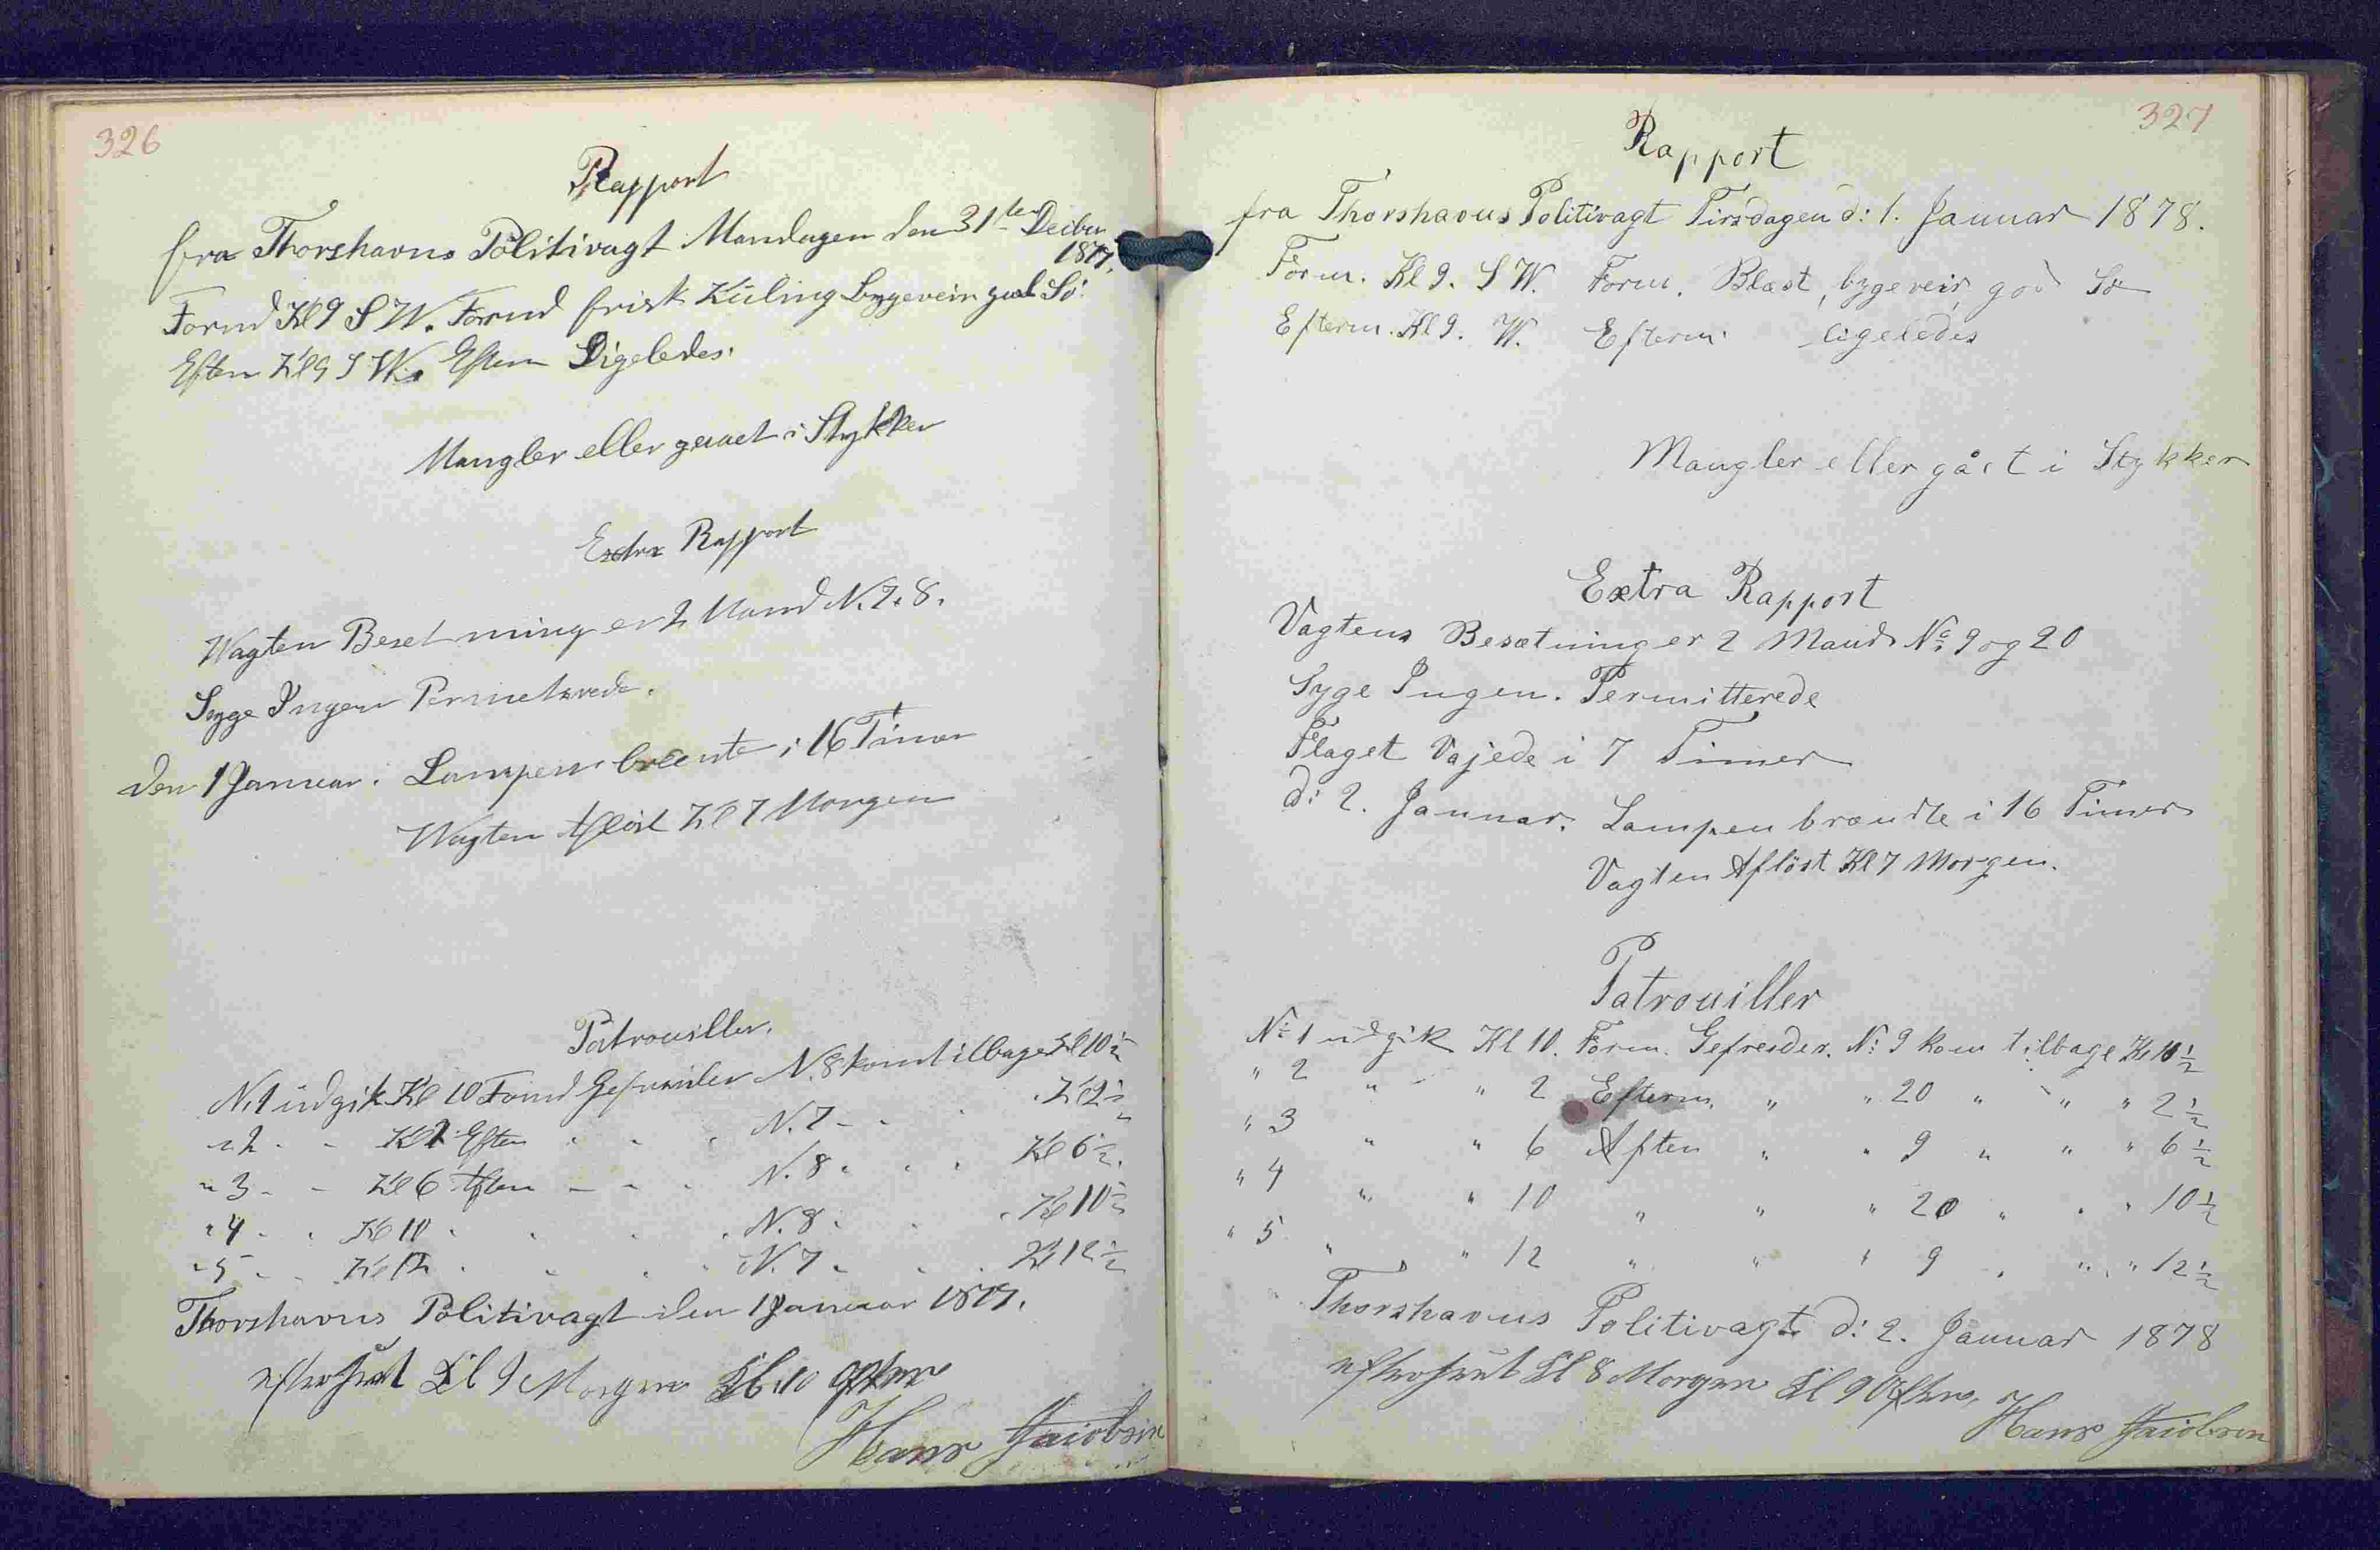 326
Rapport
fra Thorshavns Politivagt Mandagen den 31ten Decbr
1877.
Formd Kl 9 S W. Formd frisk Kuling Bygeveir god Sö.
Eftm Kl 9 S W. Eftm Ligeledes.
Mangler eller gaaet i Stykker
Extra Rapport
Wagten Besetmning er 2 Mand N. 7. 8.
Syge Ingen Permiterede.
den 1 Januar. Lampen brente i 16 Timer
Wagten Aflöst Kl 7 Morgen
Patrouiller.
N. 1 udgik Kl 10 Formd Gefreider N. 8 kom tilbage Kl 10 ½
" 2 - - Kl 2 Eftm " - " N. 7 - - " Kl 2 ½
" 3 - - Kl 6 Aften - - " N. 8 " " " Kl 6 ½.
" 4 - " Kl 10 " " " " N. 8 " " " Kl 10 ½
" 5 - - Kl 12 " " " " N. 7 " " " Kl 12 ½
Thorshavns Politivagt den 1 Januar 1877.
efterseet Kl 9 Morgen Kl 10 Aften
Hans Jacobsen
327
Rapport
fra Thorshavns Politivagt Tirsdagen d: 1. Januar 1878.
Form. Kl 9. S W. Form. Blæst, bygeveir, god Sö
Efterm. Kl 9. W. Efterm. ligeledes
Mangler eller gået i Stykker
Extra Rapport
Vagtens Besætning er 2 Mand No 9 og 20
Syge Ingen. Permitterede
Flaget Vajede i 7 Timer
d: 2. Januar. Lampen brændte i 16 Timer
Vagten Aflöst Kl 7 Morgen.
Patrouiller
No 1 udgik Kl 10. Form. Gefreider. No 9 kom tilbage Kl 10 ½
" 2 " " 2 Efterm. " " 20 " " " 2 ½
" 3 " " 6 Aften " " 9 " " " 6 ½
" 4 " " 10 " " " 20 " " " 10 ½
" 5 " " 12 " " " 9 " " " 12 ½
Thorshavns Politivagt d: 2. Januar 1878
efterseet Kl 8 Morgen Kl 9 Aften,
Hans Jacobsen